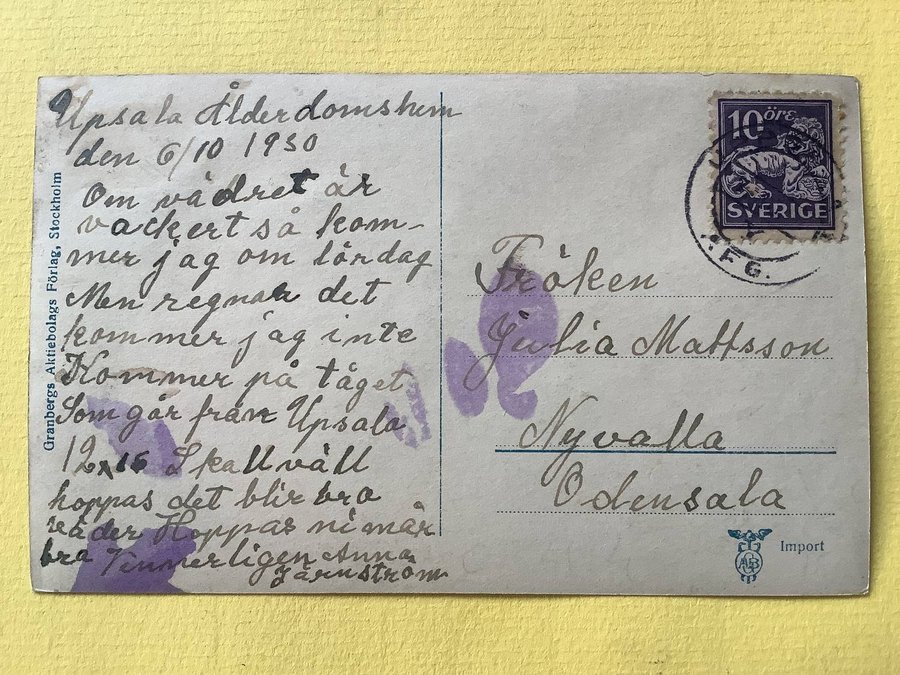 Upsala Ålderdomshem
den 6/10 1930
Om vädret är
vackert så kom-
mer jag om lördag
Men regnar det
kommer jag inte
Kommer på tåget
Som går från Upsala
12 15 Skall väll
hoppas det blir bra
väder Hoppas ni mår
bra Vennerligen Anna
Järnström
Granbergs Aktiebolags Förlag, Stockholm
10 öre
SVERIGE
Fröken
Julia Mattsson
Nyvalla
Odensala
Import